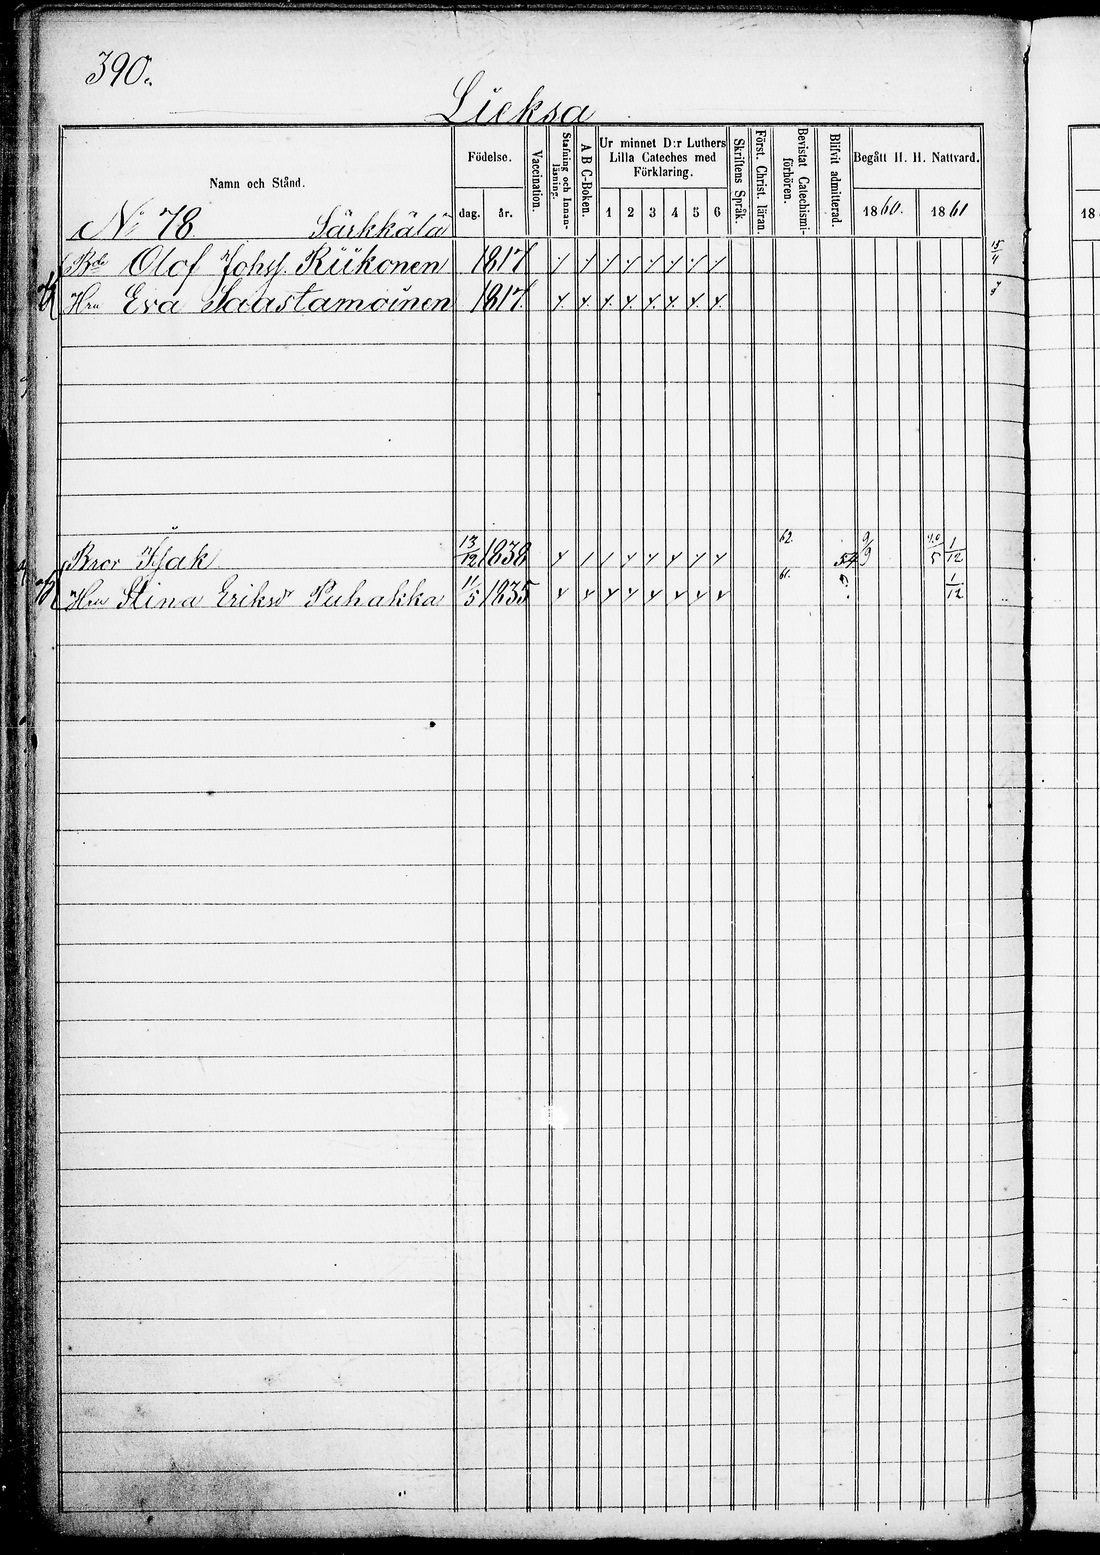 390.
Lieksa
Namn och Stånd.
Födelse.
dag.
år.
Vaccination.
Stafning och Innan-läsning.
A B C-Boken.
Ur minnet D:r Luthers
Lilla Cateches med
Förklaring.
1 2 3 4 5 6
Skriftens Språk.
Först. Christ. läran.
Bevistat Catechismi-förhören.
Blifvit admitterad.
Begått H. H. Nattvard.
1860. 1861
18
No 78 Särkkälä
Olof Johss. Riikonen 1817
Hru Eva Saastamoinen 1817.
Bror Isak 13/12 1838 62. 54 9/9 20/5 1/12
Hru Stina Eriksdr Puhakka 11/5 1835 61. ? 1/12